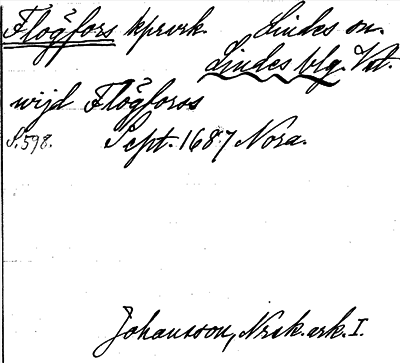 Flögfors kprvrk. Lindes sn.
Lindes blg. Vstm.
wijd Flögforss
S. 598. Sept. 1687 Nora.
Johansson, Norask. ark. I.